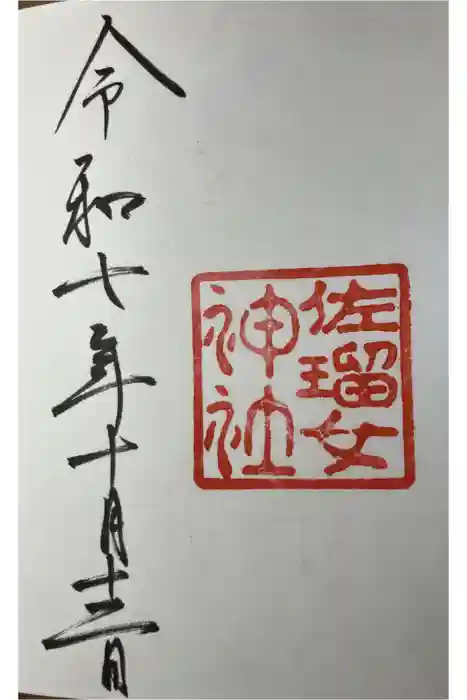 佐瑠女
神社
令和七年十月十二日